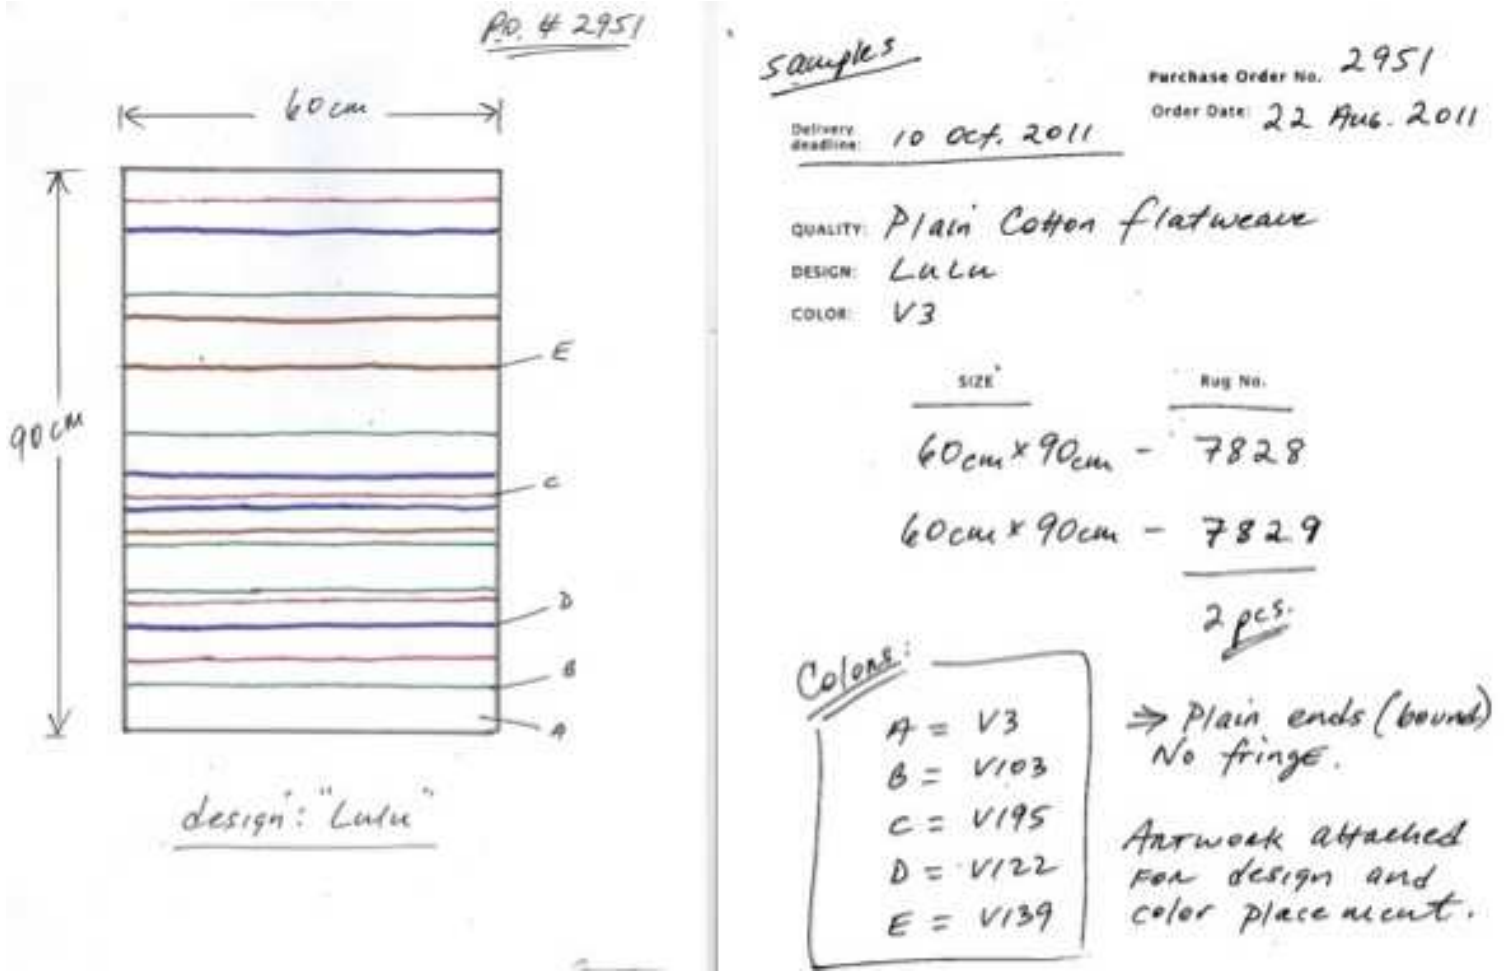 P.O. # 2951
60cm
90cm
E
C
D
B
A
design: "Lulu"
samples
Purchase Order No. 2951
Order Date: 22 Aug. 2011
Delivery deadline: 10 Oct. 2011
QUALITY: Plain Cotton flatweave
DESIGN: LuLu
COLOR: V3
SIZE Rug No.
60cm x 90cm - 7828
60cm x 90cm - 7829
2 pcs.
Colors:
A = V3
B = V103
C = V195
D = V122
E = V139
⇒ Plain ends (bound)
No fringe.
Artwork attached
for design and
color placement.